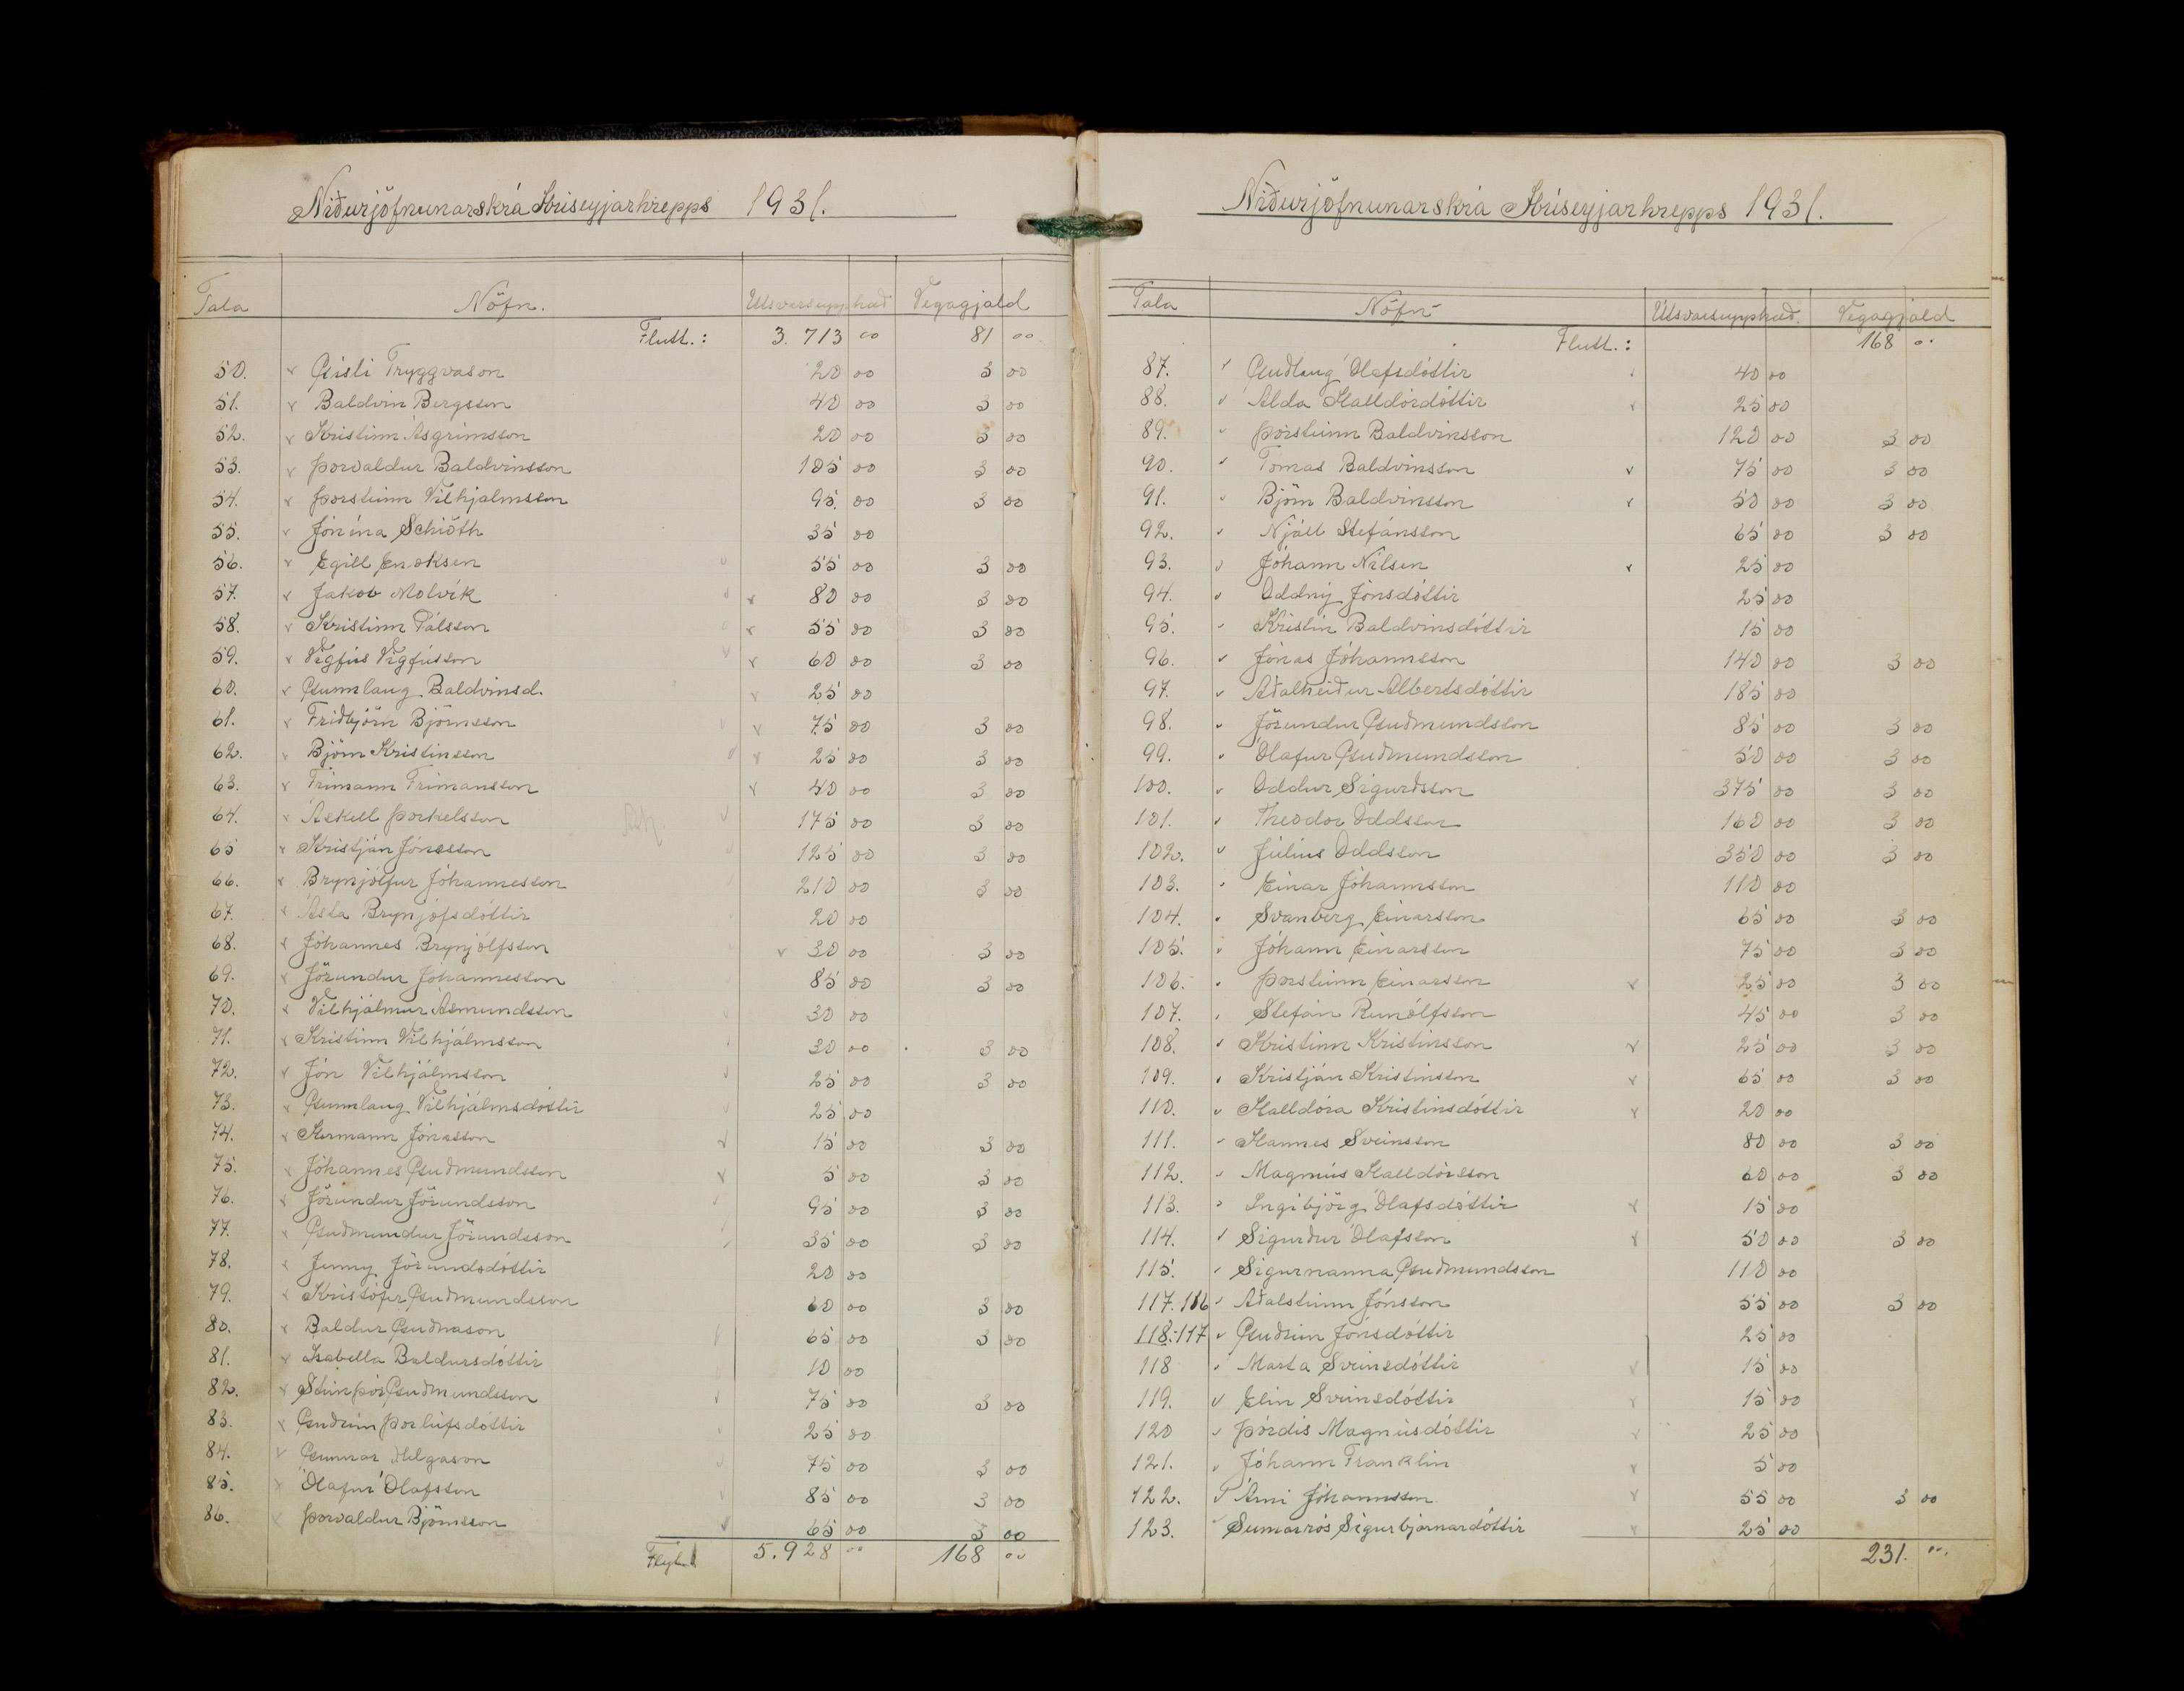 Niðurjöfnunarskrá Hríseyjarhrepps 1931.
Tala Nöfn. Útsvarsupphæð Vegagjald
Flutt.: 3.713 00 81 00
50. Gísli Tryggvason 20 00 3 00
51. Baldvin Bergsson 40 00 3 00
52. Kristinn Ásgrímsson 20 00 3 00
53. Þorvaldur Baldvinsson 105 00 3 00
54. Þorsteinn Vilhjalmsson 95. 00 3 00
55. Jónína Schiöth 35 00
56. Egill Enoksen 55 00 3 00
57. Jakob Molvík 80 00 3 00
58. Kristinn Pálsson 55 00 3 00
59. Vigfús Vigfússon 60 00 3 00
60. Gunnlaug Baldvinsd. 25 00
61. Friðbjörn Björnsson 75 00 3 00
62. Björn Kristinsson 25 00 3 00
63. Frímann Frímansson 40 00 3 00
64. Áskell Þorkelsson 175 00 3 00
65 Kristján Jónsson 125 00 3 00
66. Brynjólfur Jóhannesson 210 00 3 00
67. Ásta Brynjófsdóttir 20 00
68. Jóhannes Brynjólfsson 30 00 3 00
69. Jörundur Jóhannesson 85 00 3 00
70. Vilhjálmur Ásmundsson 30 00
71. Kristinn Vilhjálmsson 30 00 3 00
72. Jón Vilhjálmsson 25 00 3 00
73. Gunnlaug Vilhjálmsdóttir 25 00
74. Hermann Jónasson 15 00 3 00
75. Jóhannes Guðmundsson 5 00 3 00
76. Jörundur Jörundsson 95 00 3 00
77. Guðmundur Jörundsson 35 00 3 00
78. Jenny Jörundsdóttir 20 00
79. Kristófer Guðmundsson 60 00 3 00
80. Baldur Guðnason 65 00 3 00
81. Isabella Baldursdóttir 10 00
82. Steinþór Guðmundsson 75 00 3 00
83. Guðrún Þorleifsdóttir 25 00
84. Gunnar Helgason 75 00 3 00
85. Ólafur Ólafsson 85 00 3 00
86. Þorvaldur Björnsson 65 00 3 00
5.928 00 168 00
Niðurjöfnunarskrá Hríseyjarhrepps 1931.
Tala Nöfn Útsvarsupphæð. Vegagjald
Flutt.: 168 00
87. Guðlaug Ólafsdóttir 40 00
88. Alda Halldórdóttir 25 00
89. Þorsteinn Baldvinsson 120 00 3 00
90. Tómas Baldvinsson 75 00 3 00
91. Björn Baldvinsson 50 00 3 00
92. Njáll Stefánsson 65 00 3 00
93. Jóhann Nilsen 25 00
94. Oddný Jónsdóttir 25 00
95. Kristín Baldvinsdóttir 15 00
96. Jónas Jóhannsson 140 00 3 00
97. Aðalheiður Albertsdóttir 185 00
98. Jörundur Guðmundsson 85 00 3 00
99. Ólafur Guðmundsson 50 00 3 00
100. Oddur Sigurðsson 375 00 3 00
101. Theodor Oddsson 160 00 3 00
102. Júlíus Oddsson 350 00 3 00
103. Einar Jóhannsson 110 00
104. Svanberg Einarsson 65 00 3 00
105. Jóhann Einarsson 75 00 3 00
106. Þorsteinn Einarsson 25 00 3 00
107. Stefán Runólfsson 45 00 3 00
108. Kristinn Kristinsson 25 00 3 00
109. Kristján Kristinsson 65 00 3 00
110. Halldóra Kristinsdóttir 20 00
111. Hannes Sveinsson 80 00 3 00
112. Magnús Halldórsson 60 00 3 00
113. Ingibjörg Ólafsdóttir 15 00
114. Sigurður Ólafsson 50 00 3 00
115. Sigurnanna Guðmundsson 110 00
117. 116 Aðalsteinn Jónsson 55 00 3 00
118. 117 Guðrún Jónsdóttir 25 00
118 Marta Sveinsdóttir 15 00
119. Elín Sveinsdóttir 15 00
120 Þórdís Magnúsdóttir 25 00
121. Jóhann Franklin 5 00
122. Árni Jóhannsson 55 00 3 00
123. Sumarrós Sigurbjarnardóttir 25 00
231. 00